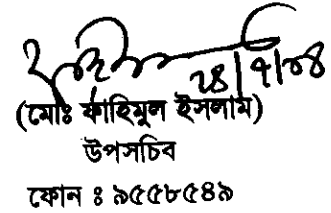 ২৪|৭|০৪
(মোঃ ফাহিমুল ইসলাম)
উপসচিব
ফোন ঃ ৯৫৫৮৫৪৯